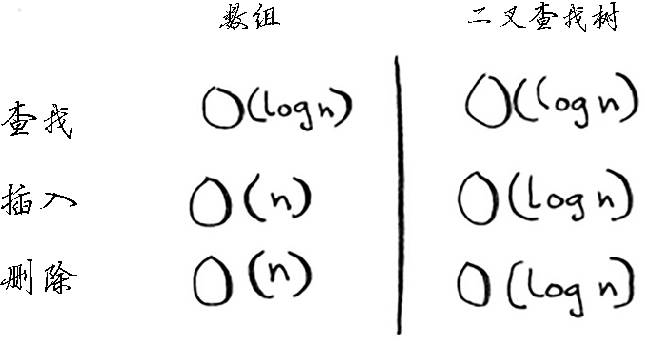 数组 二叉查找树
查找 O(logn) O(logn)
插入 O(n) O(logn)
删除 O(n) O(logn)